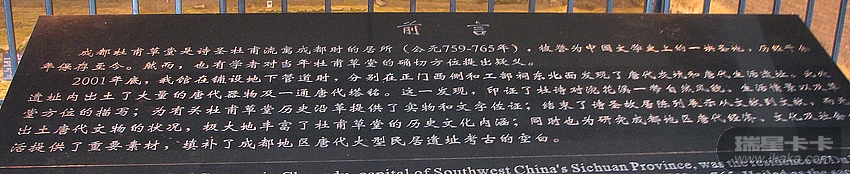 前言
成都杜甫草堂是诗圣杜甫流寓成都时的居所（公元759-765年），被誉为中国文学史上的一块圣地，历经千余
年保存至今。然而，也有学者对当年杜甫草堂的确切方位提出疑义。
2001年底，我馆在铺设地下管道时，分别在正门西侧和工部祠东北面发现了唐代灰坑和唐代生活遗址。此处
遗址内出土了大量的唐代器物及一通唐代塔铭。这一发现，印证了杜诗对浣花溪一带自然风貌、生活情景以及草
堂方位的描写；为有关杜甫草堂历史沿革提供了实物和文字佐证；结束了诗圣故居陈列展示从文献到文献、而无
出土唐代文物的状况，极大地丰富了杜甫草堂的历史文化内涵；同时也为研究成都地区唐代经济、文化及社会生
活提供了重要素材，填补了成都地区唐代大型民居遗址考古的空白。
capital of Southwest China's Sichuan Province, was the residence of Du
瑞星卡卡
www.ikaka.com